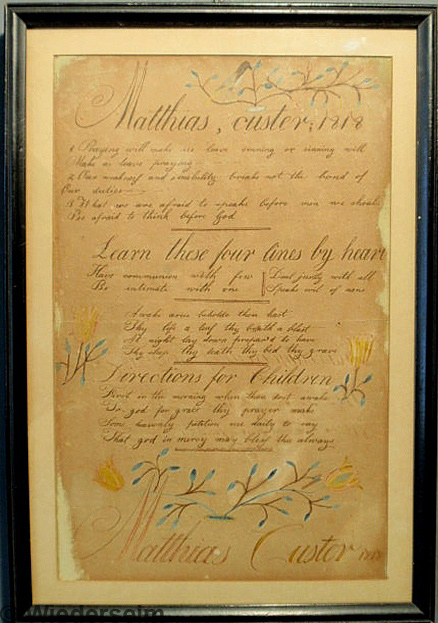 Matthias, custer, 1818
1 Praying will make us leave sinning or sinning will
Make us leave praying
2 Our weakness and inability breaks not the bond of
Our duties
3 What we are afraid to speake before men we should
Be afraid to think before God
Learn these four lines by heart
Have communion with few
Be intimate with one
Deal justly with all
Speake evil of none
Awake arise behold thou hast
Thy life a leaf thy breath a blast
At night lay down prepar'd to have
Thy sleep thy death thy bed thy grave
Directions for Children
First in the morning when thou dost awake
To god for grace thy prayer make
Some heavenly petition use daily to say
That god in mercy may bless the always
Matthias Custer 1818
© Wiederseim